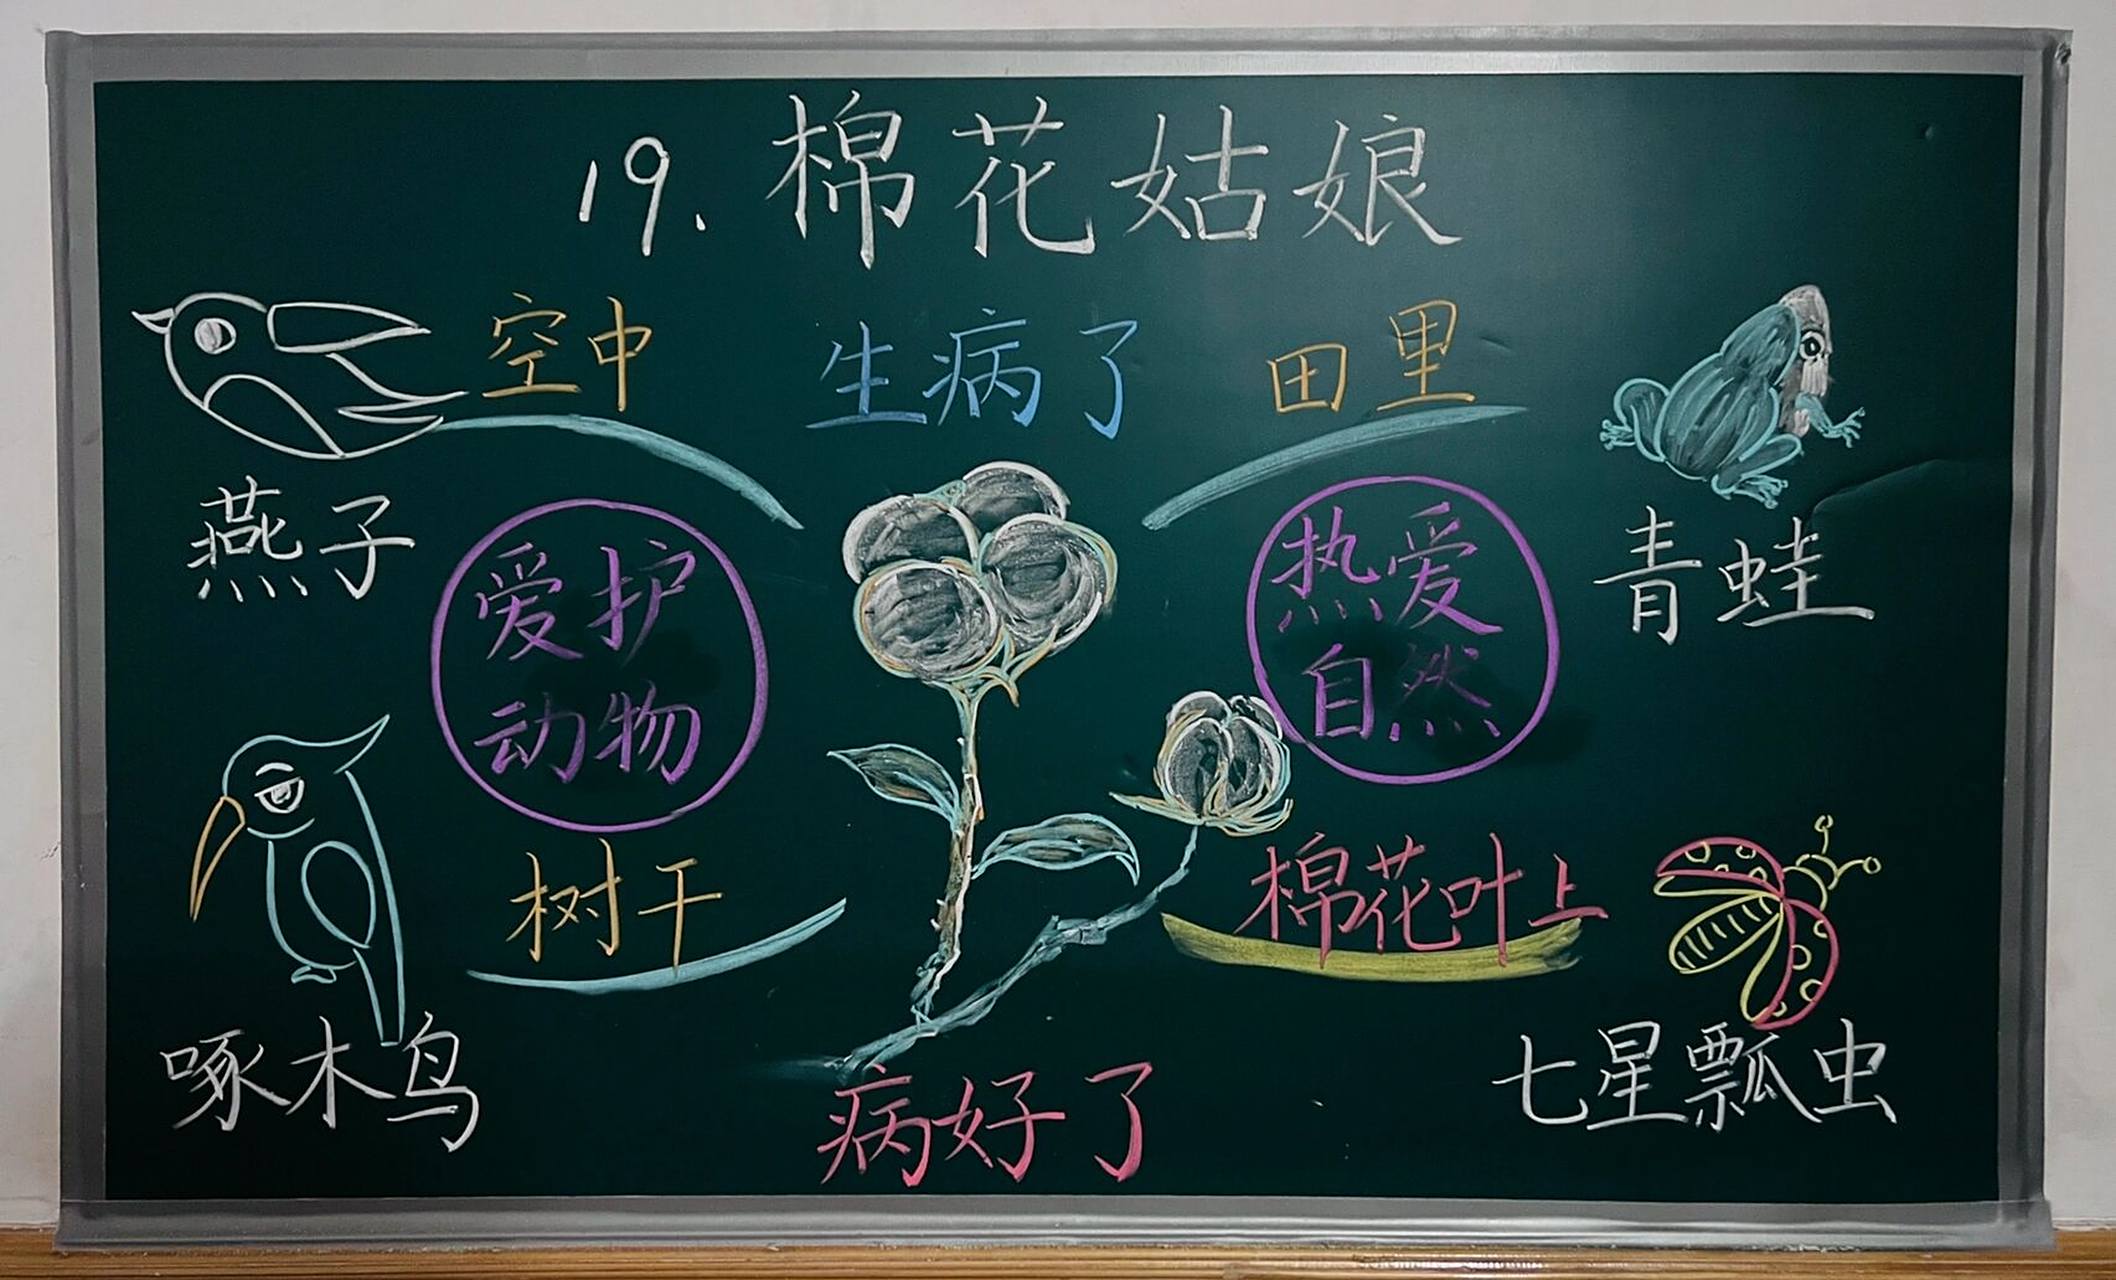 19. 棉花姑娘
空中
生病了
田里
燕子
青蛙
爱护
动物
热爱
自然
树干
棉花叶上
啄木鸟
七星瓢虫
病好了